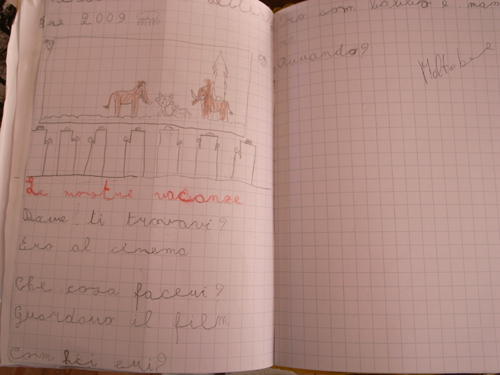 2009
Le nostre vacanze
Dove ti trovavi?
Ero al cinema
Che cosa facevi?
Guardavo il film
Con chi eri?
Ero con babbo e mam
Quando?
Molto bene